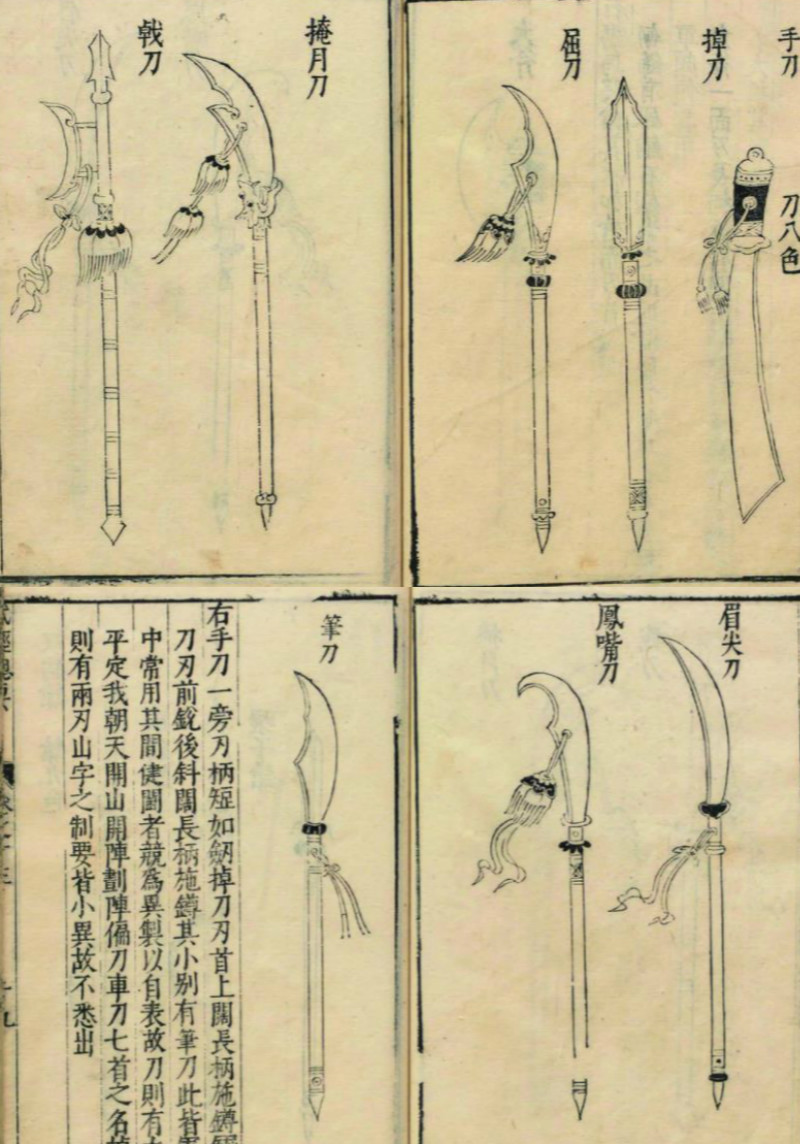 手刀
刀八色
掉刀
屈刀
掩月刀
戟刀
眉尖刀
鳳嘴刀
筆刀
右手刀一旁刃柄短如劒掉刀刃首上闊長柄施鐏
刀刃前銳後斜闊長柄施鐏其小别有筆刀此皆軍
中常用其間健鬬者競爲異製以自表故刀則有太
平定我朝天開山開陣劃陣偏刀車刀匕首之名
則有兩刃山字之制要皆小異故不悉出